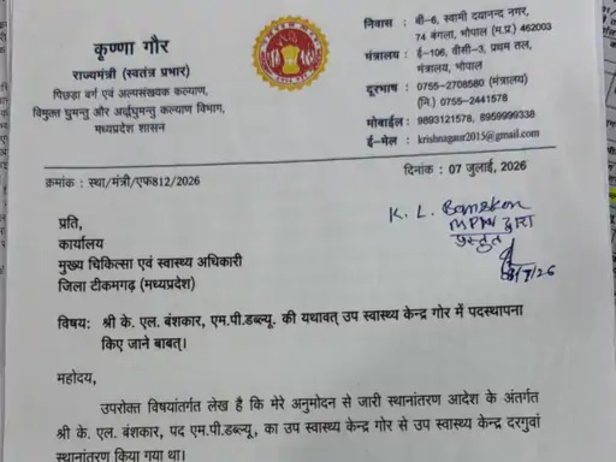 कृष्णा गौर
राज्यमंत्री (स्वतंत्र प्रभार)
पिछड़ा वर्ग एवं अल्पसंख्यक कल्याण,
विमुक्त घुमन्तु और अर्द्धघुमन्तु कल्याण विभाग,
मध्यप्रदेश शासन
निवास : बी-6, स्वामी दयानन्द नगर,
74 बंगला, भोपाल (म.प्र.) 462003
मंत्रालय : ई-106, वीसी-3, प्रथम तल,
मंत्रालय, भोपाल
दूरभाष : 0755-2708580 (मंत्रालय)
(नि.) 0755-2441578
मोबाईल : 9893121578, 8959999338
ई-मेल : krishnagaur2015@gmail.com
क्रमांक : स्था/मंत्री/एफ812/2026
दिनांक : 07 जुलाई, 2026
K. L. Banskar
MPW द्वारा
प्रस्तुत
प्रति,
कार्यालय
मुख्य चिकित्सा एवं स्वास्थ्य अधिकारी
जिला टीकमगढ़ (मध्यप्रदेश)
विषय: श्री के. एल. बंशकार, एम.पी.डब्ल्यू. की यथावत् उप स्वास्थ्य केन्द्र गोर में पदस्थापना
किए जाने बाबत्।
महोदय,
उपरोक्त विषयांतर्गत लेख है कि मेरे अनुमोदन से जारी स्थानांतरण आदेश के अंतर्गत
श्री के. एल. बंशकार, पद एम.पी.डब्ल्यू, का उप स्वास्थ्य केन्द्र गोर से उप स्वास्थ्य केन्द्र दरगुवां
स्थानांतरण किया गया था।